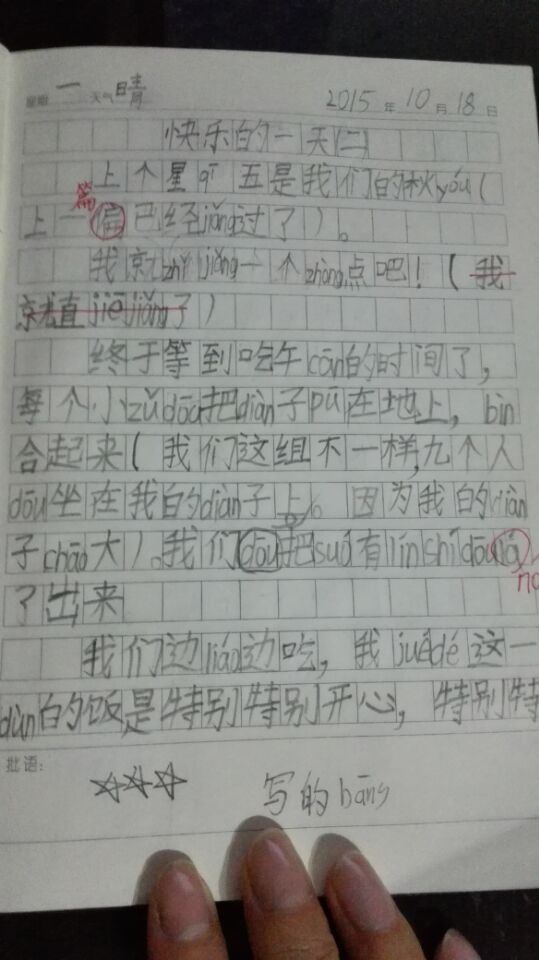 星期 一 天气 晴 2015 年 10 月 18 日
快乐的一天(二)
上个星qī五是我们的秋yóu(
篇
上一偏已经jiǎng过了)。
我就zhǐ jiǎng一个zhòng点吧!(我
就直jiē jiǎng了)
终于等到吃午cān的时间了,
每个小zǔ dōu把diàn子pū在地上,bìn
合起来(我们这组不一样,九个人
dōu坐在我的diàn子上。因为我的diàn
子chāo大)。我们dōu把suǒ有lín shí dōu lá
na
了出来
我们边liáo边吃,我juédé这一
dùn的饭是特别特别开心,特别特
批语:
☆☆☆ 写的bàng